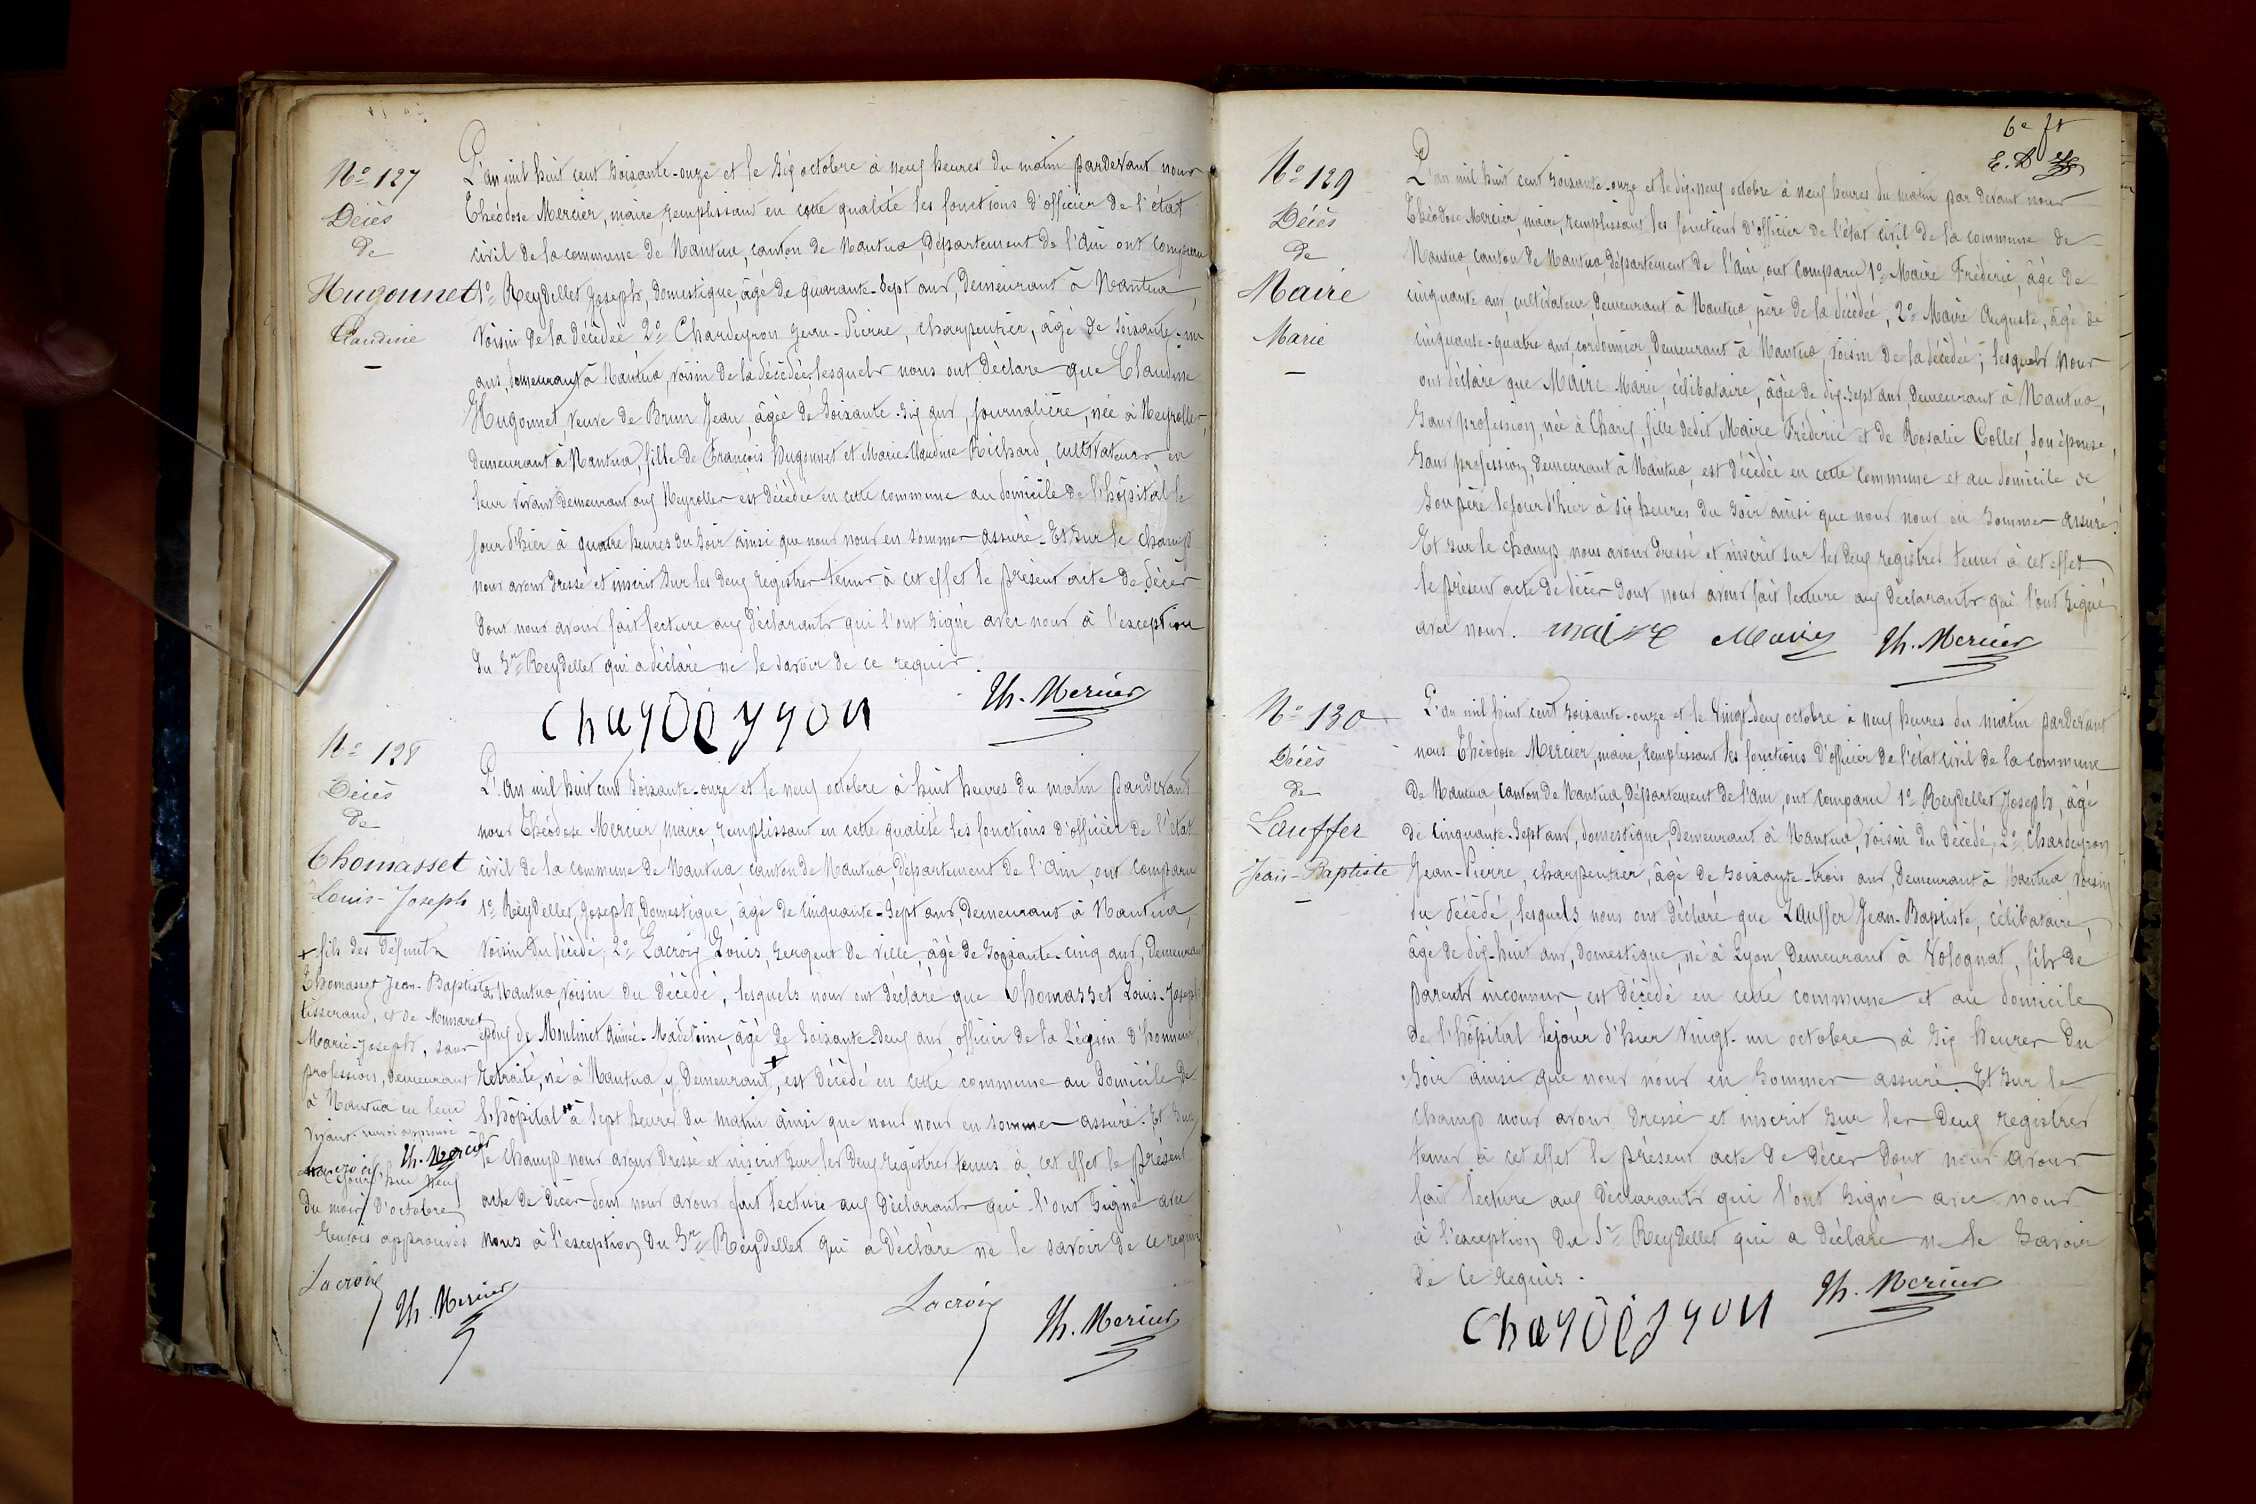 No 127
Décès
de
Hugonnet
Claudine
L'an mil huit cent soixante-onze et le six octobre à neuf heures du matin pardevant nous
Théodose Mercier, maire, remplissant en cette qualité les fonctions d'officier de l'état
civil de la commune de Nantua, canton de Nantua, département de l'Ain ont comparu
1o Reydellet Joseph, domestique, âgé de quarante-sept ans, demeurant à Nantua,
voisin de la décédée 2o Chardeyron Jean-Pierre, charpentier, âgé de soixante-un
ans, demeurant à Nantua, voisin de la décédée, lesquels nous ont déclaré que Claudine
Hugonnet, veuve de Brun Jean, âgée de soixante-six ans, journalière, née à Neyrolles,
demeurant à Nantua, fille de François Hugonnet et Marie-Claudine Richard, cultivateurs en
leur vivant demeurant aux Neyrolles est décédée en cette commune au domicile de l'hôpital le
jour d'hier à quatre heures du soir ainsi que nous nous en sommes assuré. Et sur le champ
nous avons dressé et inscrit sur les deux registres tenus à cet effet le présent acte de décès
dont nous avons fait lecture aux déclarants qui l'ont signé avec nous à l'exception
du Sr Reydellet qui a déclaré ne le savoir de ce requis.
Chardeyron Th. Mercier
No 128
Décès
de
Thomasset
Louis-Joseph
+ fils des défunts
Thomasset Jean-Baptiste
tisserand, et de Munaret
Marie-Joseph, sans
profession, demeurant
à Nantua en leur
vivant. renvoi approuvé
Lacroix Th. Mercier
Ce jourd'hui neuf
du mois d'octobre
Renvois approuvés
Lacroix Th. Mercier
L'an mil huit cent soixante-onze et le neuf octobre à huit heures du matin pardevant
nous Théodose Mercier, maire, remplissant en cette qualité les fonctions d'officier de l'état
civil de la commune de Nantua canton de Nantua, département de l'Ain, ont comparu
1o Reydellet, Joseph, domestique, âgé de cinquante-sept ans, demeurant à Nantua,
voisin du décédé, 2o Lacroix Louis, sergent de ville, âgé de soixante-cinq ans, demeurant
à Nantua, voisin du décédé, lesquels nous ont déclaré que Thomasset Louis-Joseph
époux de Moulinet Aimée-Madeleine, âgé de soixante-deux ans, officier de la Légion d'honneur,
retraité, né à Nantua, y demeurant +, est décédé en cette commune au domicile de
l'hôpital à sept heures du matin ainsi que nous nous en sommes assuré. Et sur
le champ nous avons dressé et inscrit sur les deux registres tenus à cet effet le présent
acte de décès dont nous avons fait lecture aux déclarants qui l'ont signé avec
nous à l'exception du Sr Reydellet qui a déclaré ne le savoir de ce requis
Lacroix Th. Mercier
6e ft
No 129
Décès
de
Maire
Marie
L'an mil huit cent soixante-onze et le dix-neuf octobre à neuf heures du matin par devant nous
Théodose Mercier, maire, remplissant les fonctions d'officier de l'état civil de la commune de
Nantua, canton de Nantua, département de l'Ain, ont comparu 1o Maire Fréderic, âgé de
cinquante ans, cultivateur, demeurant à Nantua, père de la décédée, 2o Maire Auguste, âgé de
cinquante-quatre ans, cordonnier, demeurant à Nantua, voisin de la décédée; lesquels nous
ont déclaré que Maire Marie, célibataire, âgée de dix-sept ans, demeurant à Nantua,
sans profession, née à Charix, fille dedit Maire Fréderic et de Rosalie Collet, son épouse,
sans profession, demeurant à Nantua, est décédée en cette commune et au domicile de
son père le jour d'hier à six heures du soir ainsi que nous nous en sommes assuré.
Et sur le champ nous avons dressé et inscrit sur les deux registres tenus à cet effet
le présent acte de décès dont nous avons fait lecture aux déclarants qui l'ont signé
avec nous. maire Maire Th. Mercier
No 130
Décès
de
Lauffer
Jean-Baptiste
L'an mil huit cent soixante-onze et le vingt-deux octobre à neuf heures du matin pardevant
nous Théodose Mercier, maire, remplissant les fonctions d'officier de l'état civil de la commune
de Nantua, canton de Nantua, département de l'Ain, ont comparu 1o Reydellet Joseph, âgé
de cinquante-sept ans, domestique, demeurant à Nantua, voisin du décédé, 2o Chardeyron
Jean-Pierre, charpentier, âgé de soixante-trois ans, demeurant à Nantua voisin
du décédé, lesquels nous ont déclaré que Lauffer Jean-Baptiste, célibataire,
âgé de dix-huit ans, domestique, né à Lyon, demeurant à Volognat, fils de
parents inconnus est décédé en cette commune et au domicile
de l'hôpital le jour d'hier vingt-un octobre à six heures du
soir ainsi que nous nous en sommes assuré. Et sur le
champ nous avons dressé et inscrit sur les deux registres
tenus à cet effet le présent acte de décès dont nous avons
fait lecture aux déclarants qui l'ont signé avec nous
à l'exception du Sr Reydellet qui a déclaré ne le savoir
de ce requis.
Chardeyron Th. Mercier